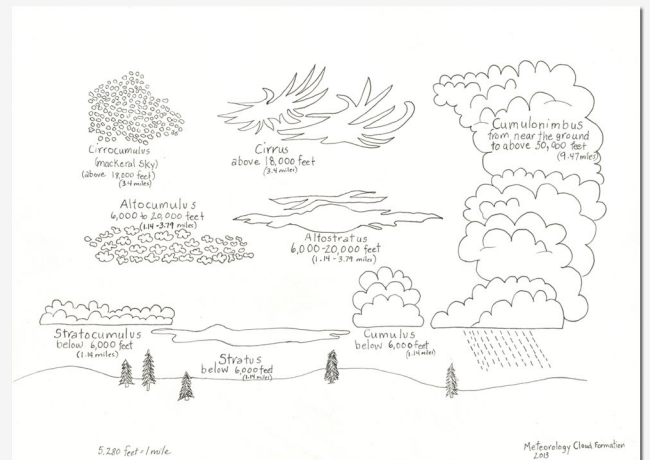 Cirrocumulus
(mackeral Sky)
(above 18,000 feet)
(3.4 miles)
Cirrus
above 18,000 feet
(3.4 miles)
Cumulonimbus
from near the ground
to above 50,000 feet
(9.47 miles)
Altocumulus
6,000 to 20,000 feet
(1.14-3.79 miles)
Altostratus
6,000-20,000 feet
(1.14-3.79 miles)
Stratocumulus
below 6,000 feet
(1.14 miles)
Stratus
below 6,000 feet
(1.14 miles)
Cumulus
below 6,000 feet
(1.14 miles)
5,280 feet = 1 mile
Meteorology Cloud Formation
2013